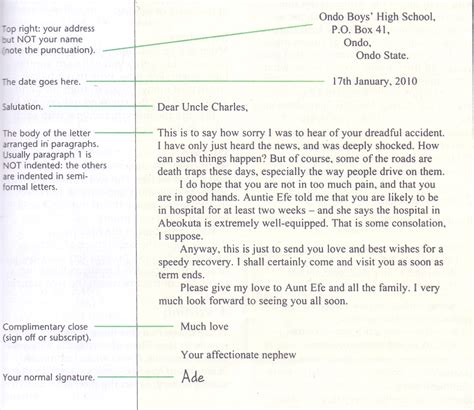 Ondo Boys' High School,
P.O. Box 41,
Ondo,
Ondo State.
Top right: your address
but NOT your name
(note the punctuation).
The date goes here.
17th January, 2010
Salutation.
Dear Uncle Charles,
The body of the letter
arranged in paragraphs.
Usually paragraph 1 is
NOT indented: the others
are indented in semi-
formal letters.
This is to say how sorry I was to hear of your dreadful accident.
I have only just heard the news, and was deeply shocked. How
can such things happen? But of course, some of the roads are
death traps these days, especially the way people drive on them.
I do hope that you are not in too much pain, and that you
are in good hands. Auntie Efe told me that you are likely to be
in hospital for at least two weeks – and she says the hospital in
Abeokuta is extremely well-equipped. That is some consolation,
I suppose.
Anyway, this is just to send you love and best wishes for a
speedy recovery. I shall certainly come and visit you as soon as
term ends.
Please give my love to Aunt Efe and all the family. I very
much look forward to seeing you all soon.
Complimentary close
(sign off or subscript).
Much love
Your affectionate nephew
Your normal signature.
Ade